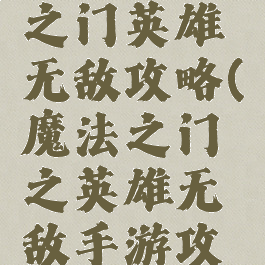 之门英雄
无敌攻略(
魔法之门
之英雄无
敌手游攻